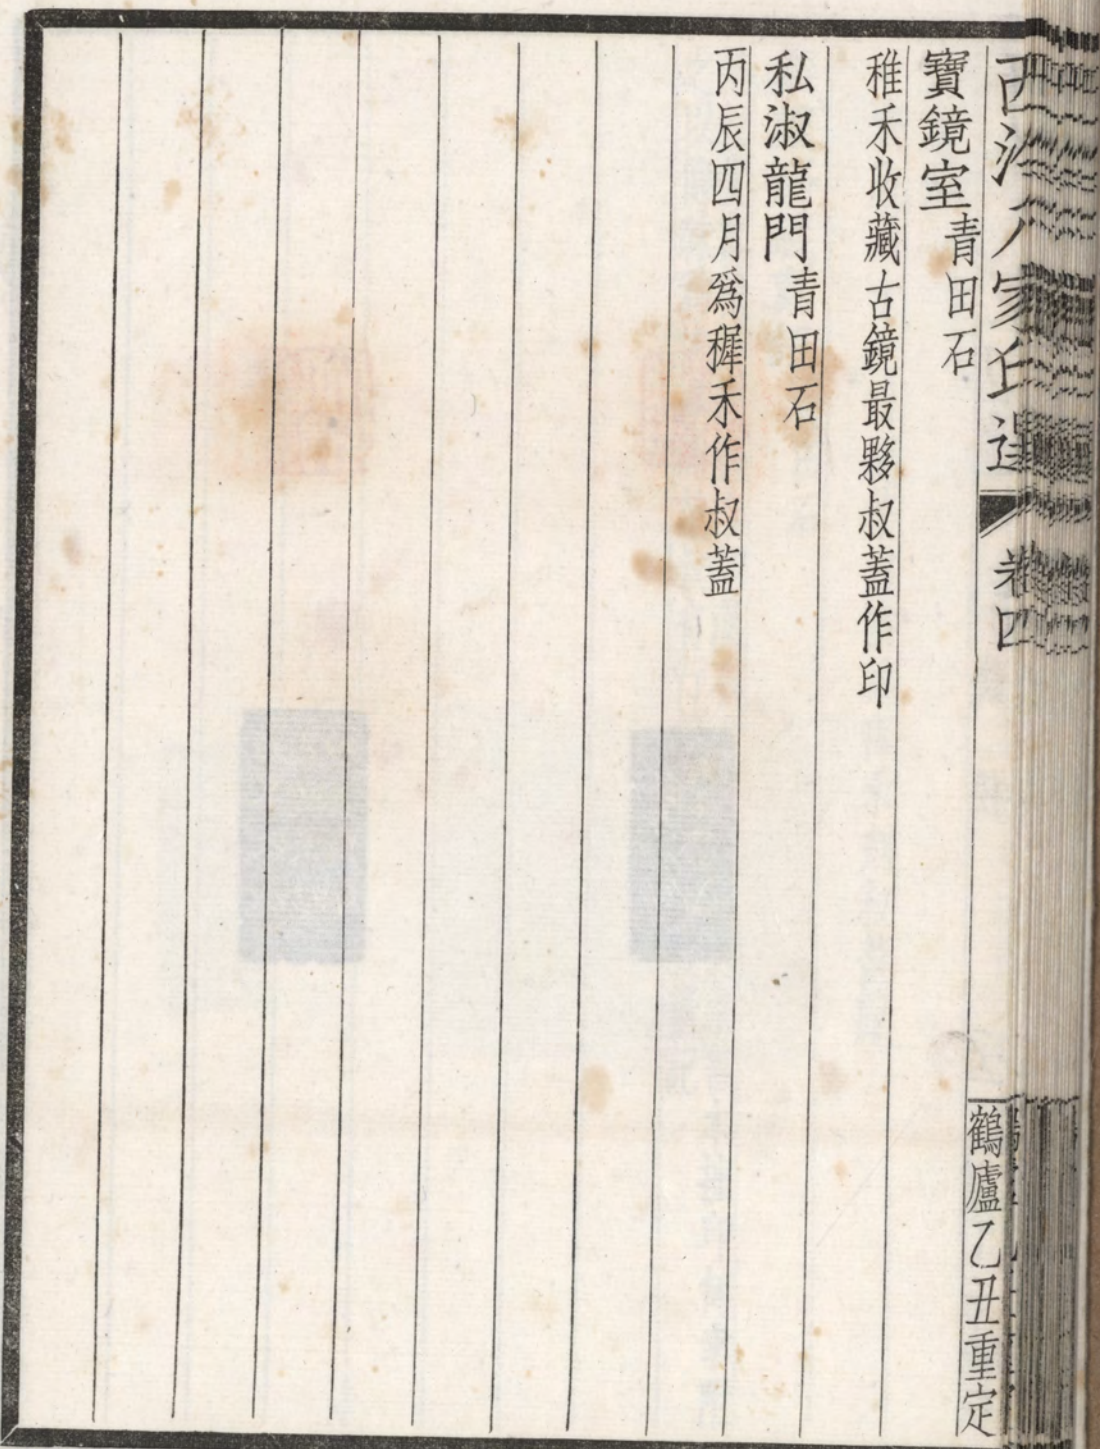 西泠八家印選 卷四
鶴廬乙丑重定
寶鏡室青田石
稚禾收藏古鏡最夥叔蓋作印
私淑龍門青田石
丙辰四月爲穉禾作叔蓋